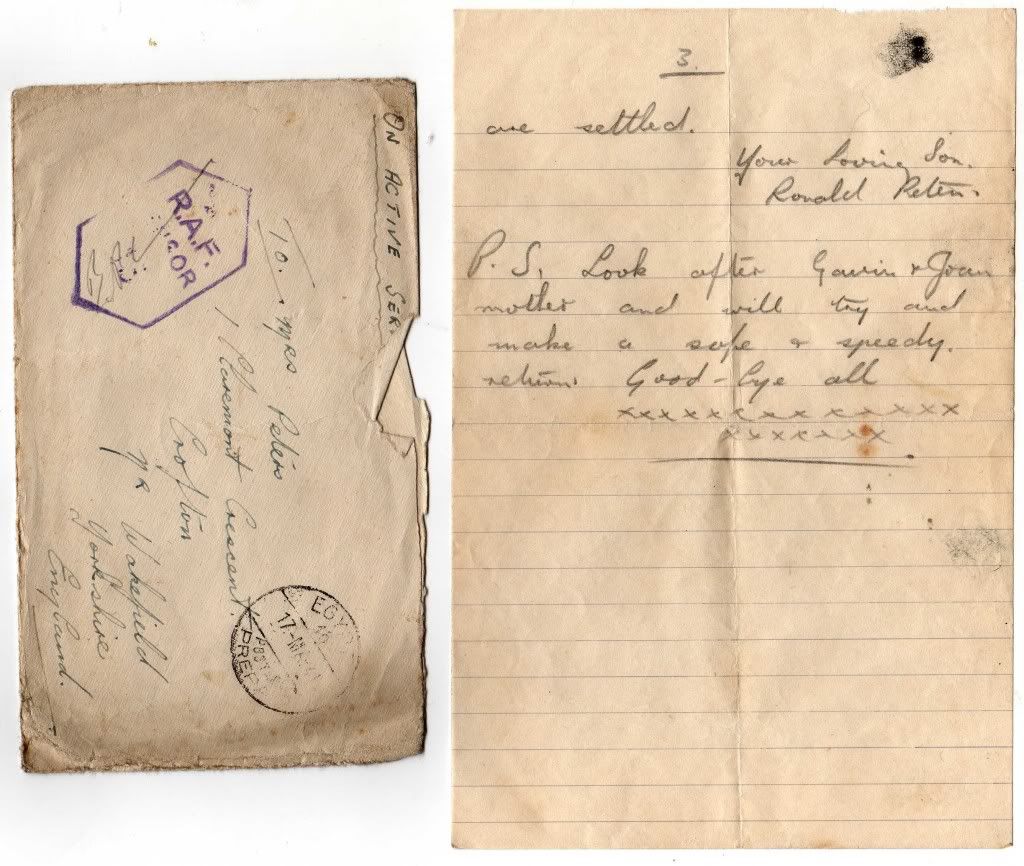 ON ACTIVE SER.
R.A.F.
TO. Mrs Peters
1 Claremont Crescent.
Crofton
Nr Wakefield
Yorkshire
England.
EGYPT
17
POST
PREP
3.
are settled.
Your Loving Son.
Ronald Peters.
P. S. Look after Gavin & Joan
mother and will try and
make a safe & speedy.
return. Good-bye all
xxxxxxxxxxxxxxx
xxxxxxxx